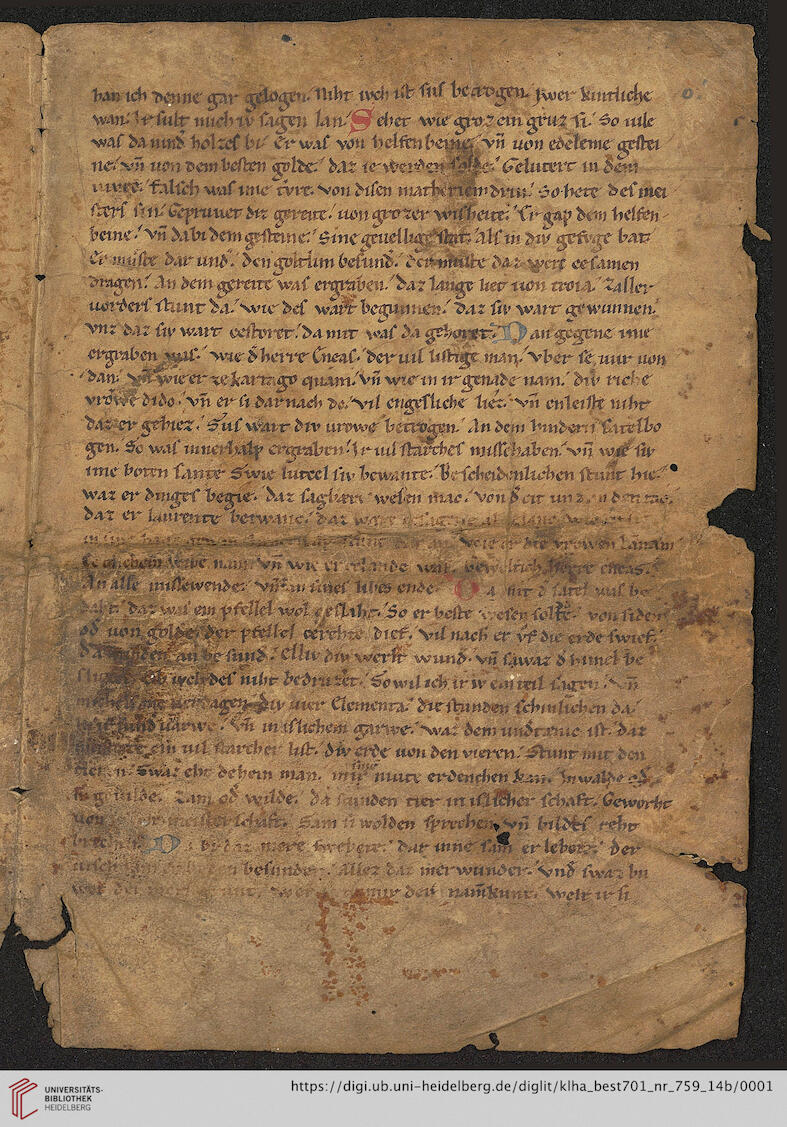 han ich denne gar gelogen. Niht iuch ist sus betrogen. swer kintliche
wan. Ir sult mich iv sagen lan. Sehet wie groz ein gruz si. So uile
was da mind holzes bi. Er was von helfenbeine. vn̄ von edeleme gestei
ne. vn̄ von dem besten golde. daz ie werden solde. Gelutert in dem
viure. falsch was ime tvre. von disen matheriem drin. So hete des mei
sters sin. Gepruuet diz gereite. uon grozer wisheite. Er gap dem helfen-
beine. vn̄ da bi dem gesteine. Sine geuellige stat. als in div gefvge bat.
Er muste dar und. den goltlim besund. der muste daz werc ce samen
dragen. An dem gereite was ergraben. daz lange liet uon troia. zaller
uorders stunt da. wie des wart begunnen. daz siv wart gewunnen.
vnz daz siv wart cestoret. da mit was da gehoret. Dan gegene ime
ergraben was. wie d herre Eneas. der uil listige man. vber se vur uon
dan. vn̄ wie er ze kartago quam. vn̄ wie in ir genade nam. div riche
vrowe dido. vn̄ er si dar nach do. vil engesliche liez. vn̄ enleiste niht
daz er gehiez. Sus wart div urowe betrogen. An dem hindern satelbo
gen. So was innerhalp ergraben. Ir uil starches missehaben. vn̄ wie siv
ime boten sante. Swie lutcel siv bewante. Bescheidenlichen stunt hie.
waz er dinges begie. daz sagbære wesen mac. von d cit unz an den tac.
daz er laurente betwanc. daz
wie er die vrowen lauam
ce elichem wibe nam. vn̄ wie er ce lande was. gewaltich herre eneas.
An alle missewende. vn̄ an sines libes ende. Da mit d satel was be
daht. daz was ein pfellel wol geslaht. So er beste wesen solte. von siden
od uon golde. der pfellel cerehte dief. vil nach er vf die erde swief.
da stunden an be sund. Elliv div werlt wund. vn̄ swaz d himel be
sliuzet. ob iuch des niht bedruzet. So wil ich ir iv ein teil sagen. vn̄
div vier Elementa. die stunden schinlichen da.
in ir sund varwe. vn̄ in islichem garwe. waz dem undtænic ist. daz
ein uil starcher list. div erde uon den vieren. Stunt mit den
tieren. Swaz eht dehein man. in sime mute erdenchen kan. In walde od
in geuilde. zam od wilde. da stunden tier in islicher schaft. Geworht
von meisterschaft. Sam si wolden sprechen. vn̄ bildes reht
brechen. Da bi daz mere swebete. dar inne sam er lebete. der
visch besunder. Allez daz merwunder. Vnd swaz bu
wet des meres grunt. Wer mir den namͤ kunt. welt ir si
UNIVERSITÄTS-
BIBLIOTHEK
HEIDELBERG
https://digi.ub.uni-heidelberg.de/diglit/klha_best701_nr_759_14b/0001